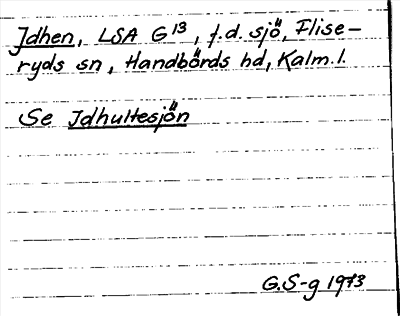 Idhen, LSA G13, f.d. sjö, Flise-
ryds sn, Handbörds hd, Kalm. l.
Se Idhultesjön
G.S-g 1973